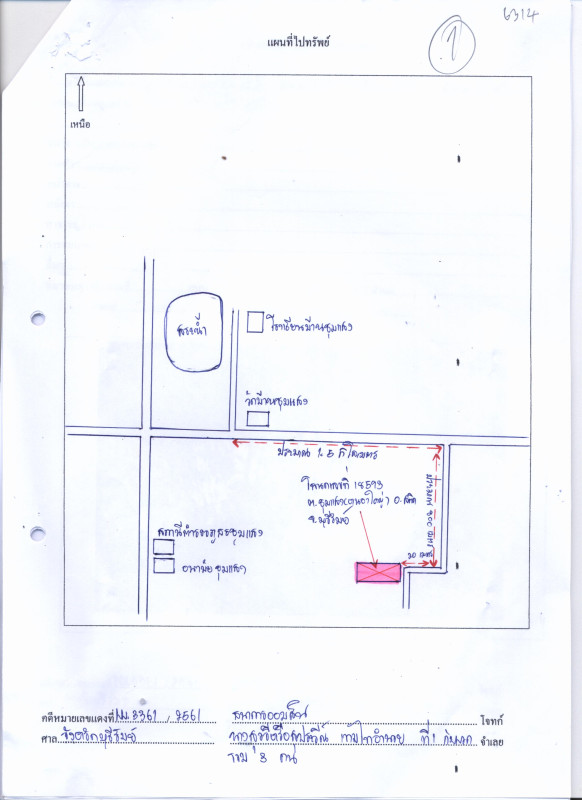 6314
แผนที่ไปทรัพย์
1
เหนือ
สระน้ำ
โรงเรียนบ้านชุมแสง
วัดบ้านชุมแสง
ประมาณ 1.5 กิโลเมตร
โฉนดเลขที่ 18593
ต.ชุมแสง อ.สตึก
จ.บุรีรัมย์
ประมาณ 300 เมตร
20 เมตร
สถานีตำรวจภูธรชุมแสง
อนามัยชุมแสง
คดีหมายเลขแดงที่ ผบ. 3361 / 2561 ธนาคารออมสิน โจทก์
ศาล จังหวัดบุรีรัมย์ ที่ 1 กับพวก จำเลย
รวม 3 คน